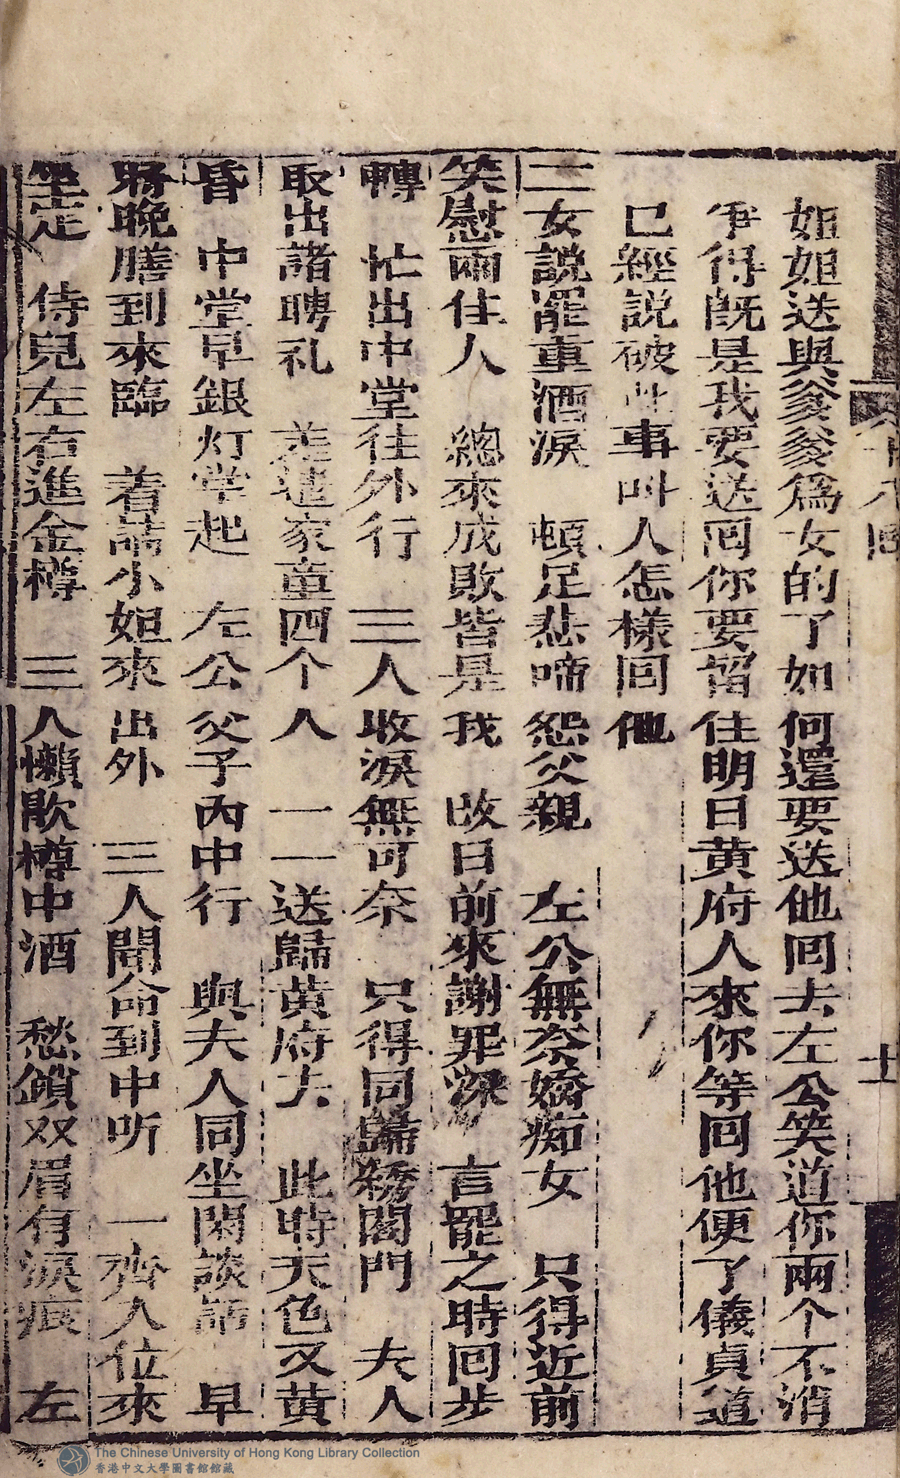 姐姐送與爹爹為女的了如何還要送他囘去左公笑道你兩个不消
爭得旣是我要送囘你要留住明日黄府人來你等囘他便了儀貞道
已經說破此事叫人怎樣囘他
二女說罷重洒淚　頓足悲啼怨父親　左公無奈嬌痴女　只得近前
笑慰兩住人　總來成敗皆是我　改日前來謝罪深　言罷之時囘步
轉　忙出中堂往外行　三人收淚無可奈　只得同歸綉閣門　夫人
取出諸聘礼　差遣家童四个人　一一送歸黄府去　此時天色又黄
昏　中堂早銀灯掌起　左公父子內中行　與夫人同坐閑談話　早
將晚膳到來臨　着請小姐來出外　三人聞命到中听　一齊入位來
坐定　侍兒左右進金樽　三人懶歃樽中酒　愁鎖双眉有淚痕　左
十八囘
十一
The Chinese University of Hong Kong Library Collection
香港中文大學圖書館館藏